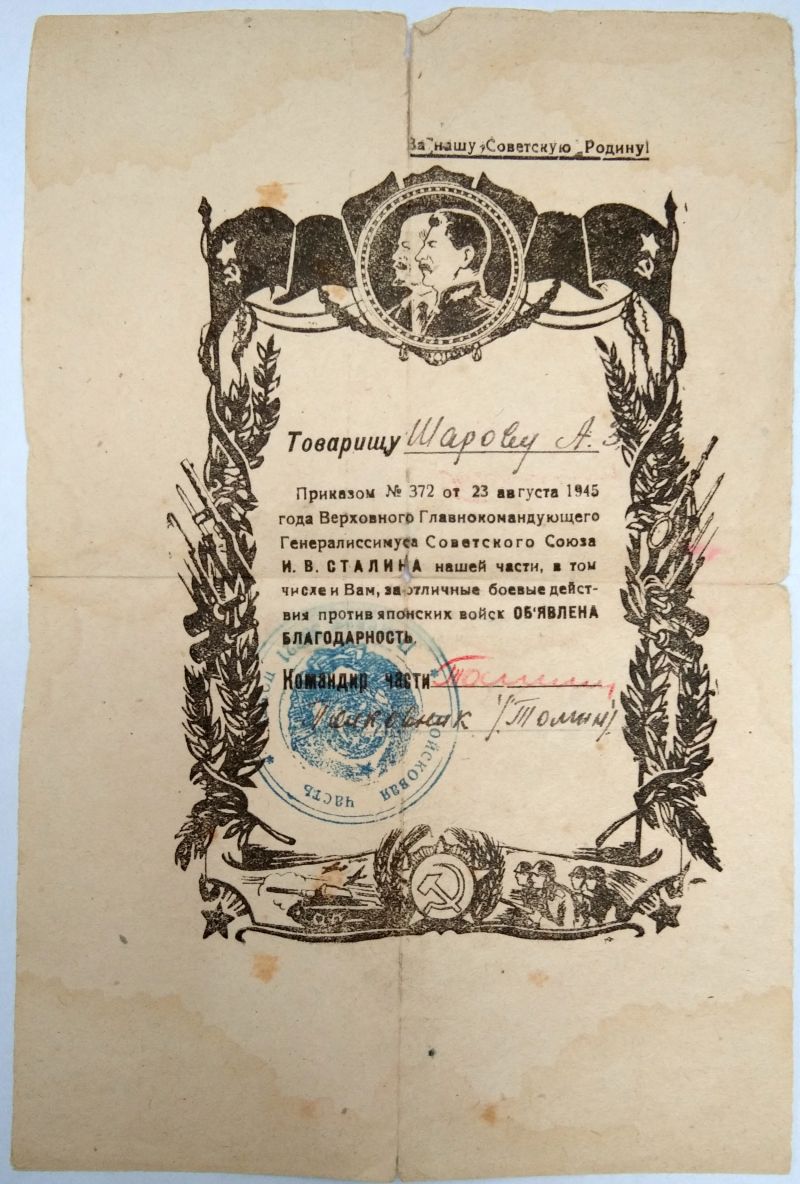 За нашу Советскую Родину!
Товарищу Шарову А. З.
Приказом № 372 от 23 августа 1945
года Верховного Главнокомандующего
Генералиссимуса Советского Союза
И. В. СТАЛИНА нашей части, в том
числе и Вам, за отличные боевые дейст-
вия против японских войск ОБ'ЯВЛЕНА
БЛАГОДАРНОСТЬ.
Командир части
Полковник /Толмин/
войсковая часть